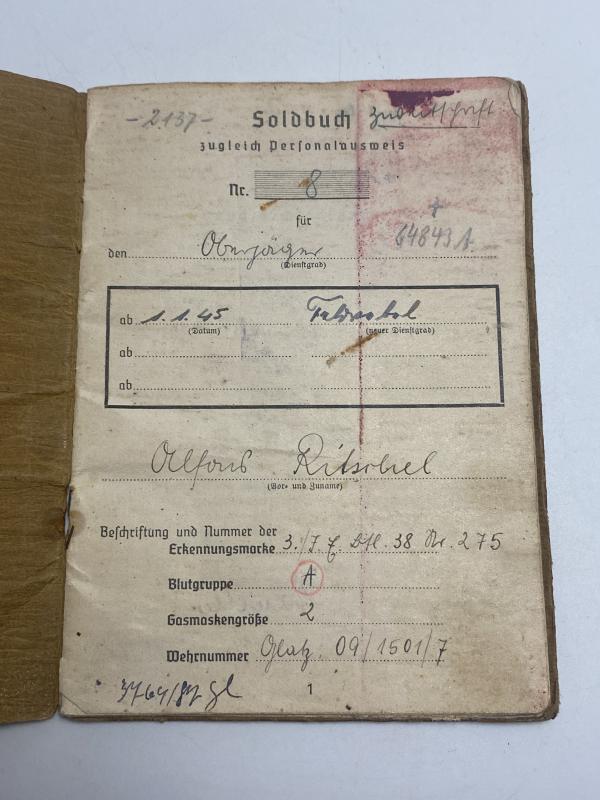 -2137-
Soldbuch Zweitschrift
zugleich Personalausweis
Nr. 8
für
64843 A.
den Oberjäger
(Dienstgrad)
ab 1.1.45 Feldwebel
(Datum) (neuer Dienstgrad)
ab
ab
Alfons Ritschel
(Vor- und Zuname)
Beschriftung und Nummer der
Erkennungsmarke 3./J. E. Btl. 38 Nr. 275
Blutgruppe A
Gasmaskengröße 2
Wehrnummer Glatz 09/1501/7
1